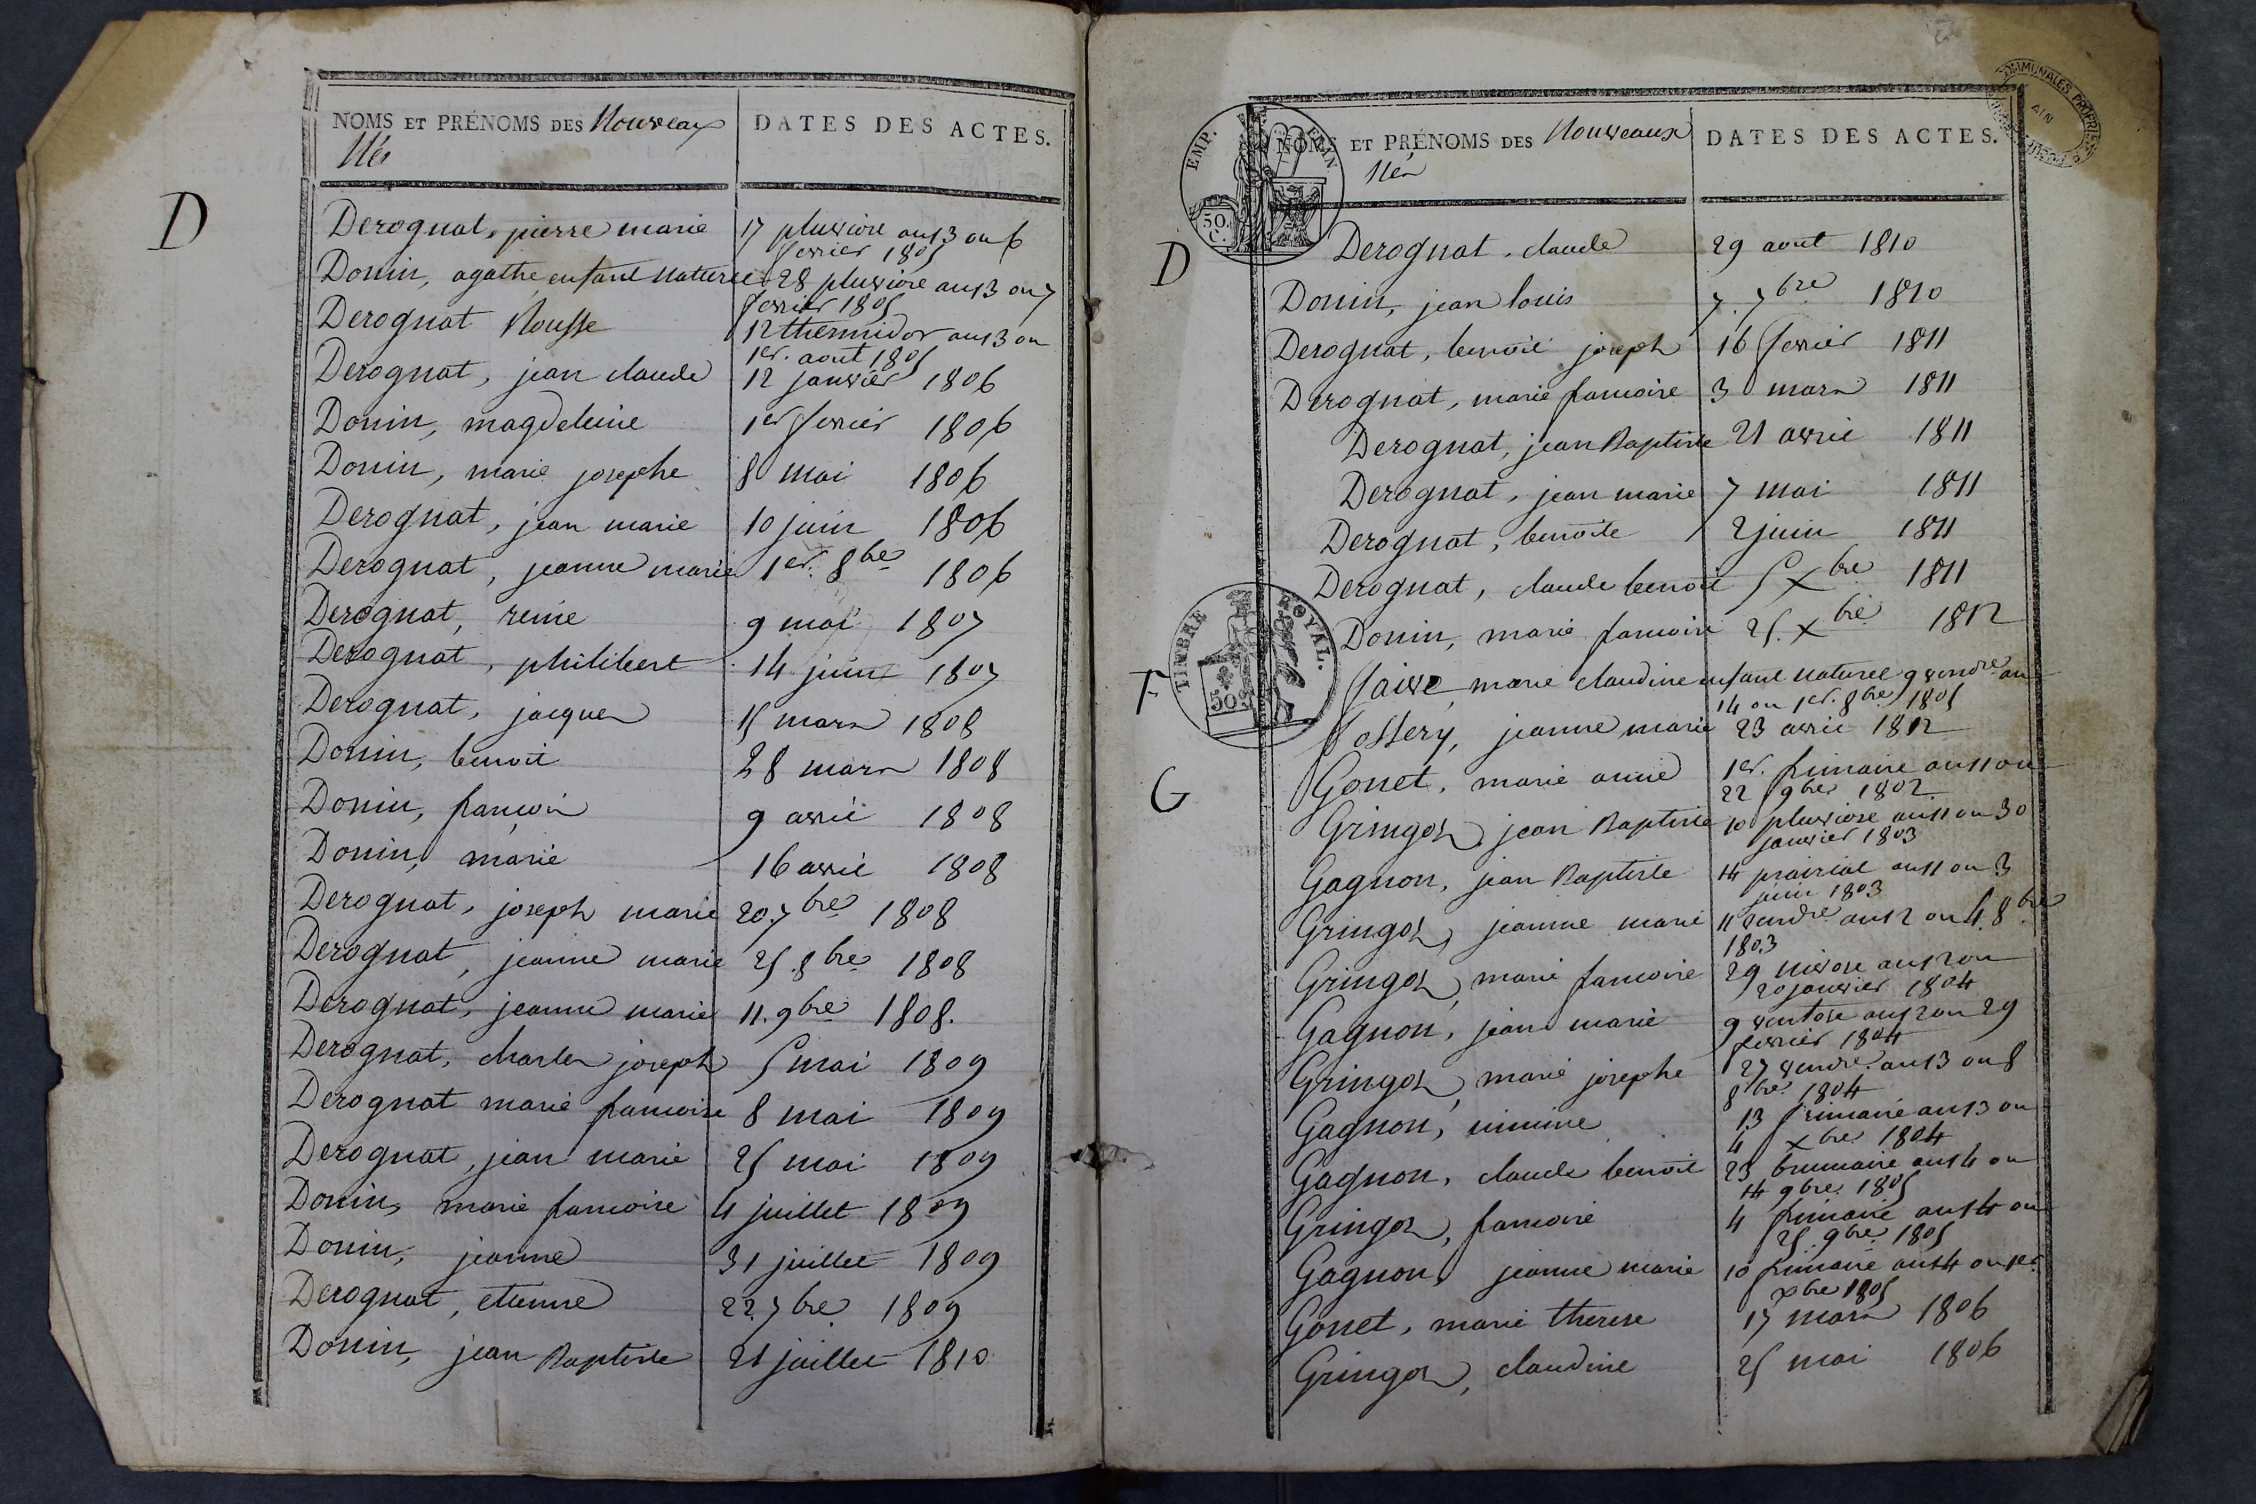 NOMS ET PRÉNOMS DES Nouveaux
Nés
DATES DES ACTES.
D
Derognat, pierre marie 17 pluviose an 13 ou 6
fevrier 1805
Donin, agathe enfant naturel 28 pluviose an 13 ou 7
fevrier 1805
Derognat Rousse 12 thermidor an 13 ou
1er. aout 1805
Derognat, jean claude 12 janvier 1806
Donin, magdeleine 1er fevrier 1806
Donin, marie josephe 8 mai 1806
Derognat, jean marie 10 juin 1806
Derognat, jeanne marie 1er. 8bre 1806
Derognat, reine 9 mai 1807
Derognat, philibert 14 juin 1807
Derognat, jacques 15 mars 1808
Donin, benoit 28 mars 1808
Donin, françois 9 avril 1808
Donin, marie 16 avril 1808
Derognat, joseph marie 20. 7bre 1808
Derognat, jeanne marie 25. 8bre 1808
Derognat, jeanne marie 11. 9bre 1808.
Derognat, charles joseph 5 mai 1809
Derognat marie francoise 8 mai 1809
Derognat, jean marie 25 mai 1809
Donin, marie francoise 4 juillet 1809
Donin, jeanne 31 juillet 1809
Derognat, etienne 22. 7bre 1809
Donin, jean Baptiste 21 juillet 1810
EMP.
50.
C.
NOMS ET PRÉNOMS DES Nouveaux
Nés
DATES DES ACTES.
AIN
D
Derognat, claude 29 aout 1810
Donin, jean louis 7. 7bre 1810
Derognat, benoit joseph 16 fevrier 1811
Derognat, marie francoise 3 mars 1811
Derognat, jean Baptiste 21 avril 1811
Derognat, jean marie 7 mai 1811
Derognat, benoite 2 juin 1811
Derognat, claude benoit 5 Xbre 1811
Donin, marie francoise 25. Xbre 1812
TIMBRE ROYAL.
50
F
faivre, marie claudine enfant naturel 9 vendre. an
14 ou 1er. 8bre 1805
fossery, jeanne marie 23 avril 1812
G
Gonet, marie anne 1er. frimaire an 11 ou
22 9bre 1802
Gringoz, jean Baptiste 10 pluviose an 11 ou 30
janvier 1803
Gagnon, jean Baptiste 14 prairial an 11 ou 3
juin 1803
Gringoz, jeanne marie 11 vendre. an 12 ou 4. 8bre
1803
Gringoz, marie francoise 29 nivose an 12 ou
20 janvier 1804
Gagnon, jean marie 9 ventose an 12 ou 29
fevrier 1804
Gringoz, marie josephe 27 vendre. an 13 ou 8
8bre. 1804
Gagnon, 13 frimaire an 13 ou
4 Xbre 1804
Gagnon, claude benoit 23 brumaire an 14 ou
14 9bre. 1805
Gringoz, francoise 4 frimaire an 14 ou
25. 9bre. 1805
Gagnon, jeanne marie 10 frimaire an 14 ou 1er.
Xbre 1805
Gonet, marie therese 17 mars 1806
Gringoz, claudine 25 mai 1806